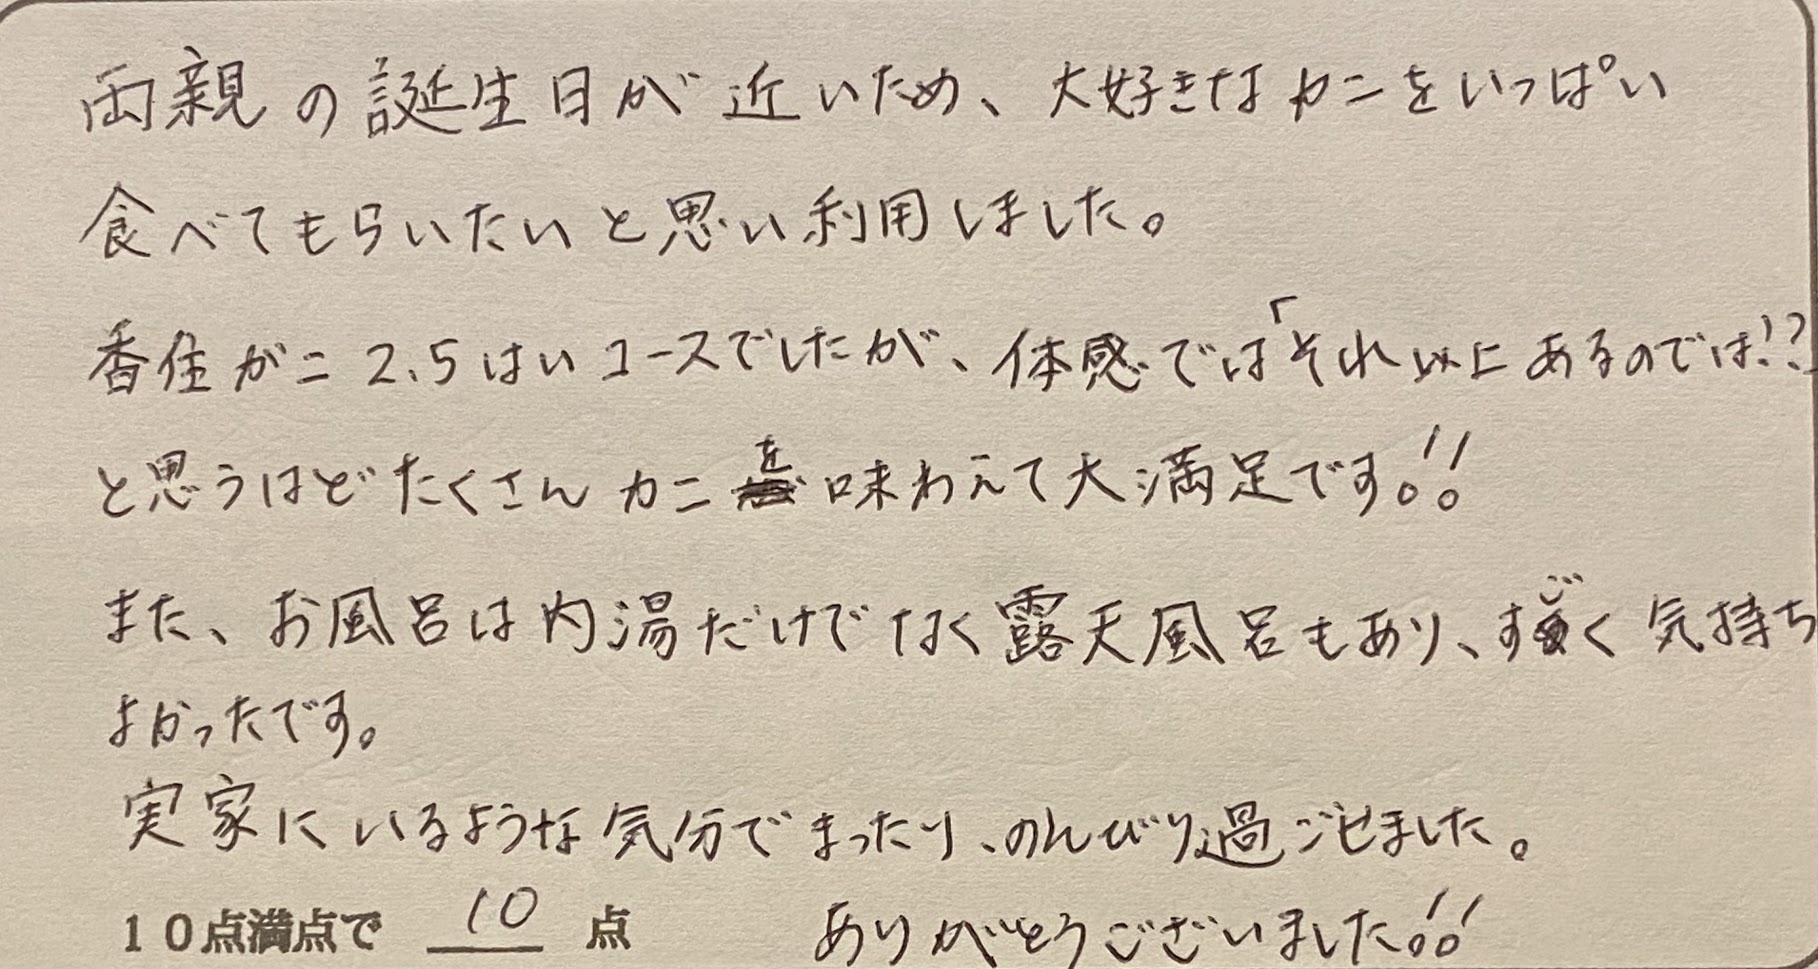 両親の誕生日が近いため、大好きなカニをいっぱい
食べてもらいたいと思い利用しました。
香住ガニ2.5はいコースでしたが、体感では「それ以上あるのでは!?
と思うほどたくさんカニを味わえて大満足です!!
また、お風呂は内湯だけでなく露天風呂もあり、すごく気持ち
よかったです。
実家にいるような気分でまったり、のんびり過ごせました。
10点満点で 10 点 ありがとうございました!!